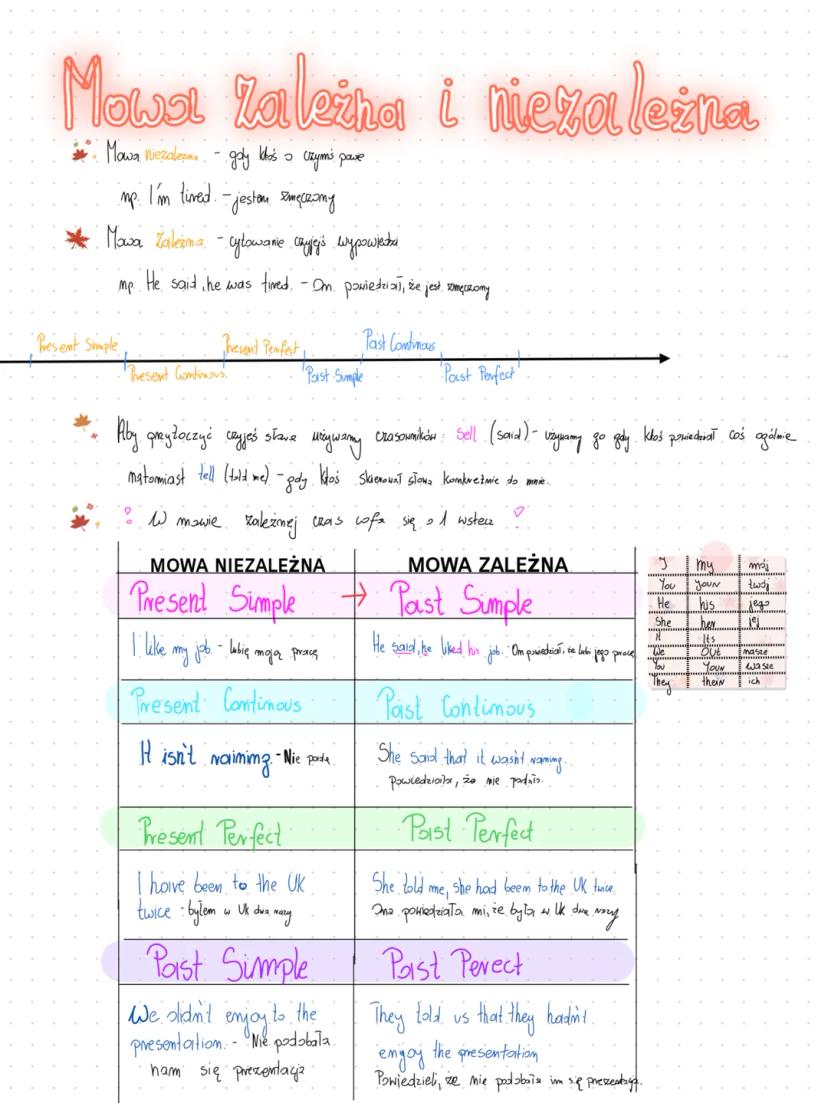 Mowa zależna i niezależna
Mowa niezależna - gdy ktoś o czymś powie
np. I'm tired. - jestem zmęczony
Mowa Zależna - cytowanie czyjejś wypowiedzi
np. He said, he was tired. - On powiedział, że jest zmęczony
Present Simple
Present Continous
Present Perfect
Past Simple
Past Continous
Past Perfect
Aby przytoczyć czyjeś słowa używamy czasowników: sell (said) - używamy go gdy ktoś powiedział coś ogólnie
natomiast tell (told me) - gdy ktoś skierował słowa konkretnie do mnie.
! W mowie zależnej czas cofa się o 1 wstecz !
MOWA NIEZALEŻNA MOWA ZALEŻNA
Present Simple → Past Simple
I like my job. - lubię moją pracę
He said, he liked his job. On powiedział, że lubi jego pracę
Present Continous Past Continous
It isn't raining. - Nie pada
She said that it wasn't raining.
Powiedziała, że nie padało.
Present Perfect Past Perfect
I have been to the UK
twice - byłem w UK dwa razy
She told me, she had been to the UK twice.
Ona powiedziała mi, że była w UK dwa razy
Past Simple Past Perect
We didn't enjoy to the
presentation. - Nie podobała
nam się prezentacja
They told us that they hadn't
enjoy the presentation
Powiedzieli, że nie podobała im się prezentacja.
I my mój
You your twój
He his jego
She her jej
It Its
We our nasze
You Your wasze
They their ich